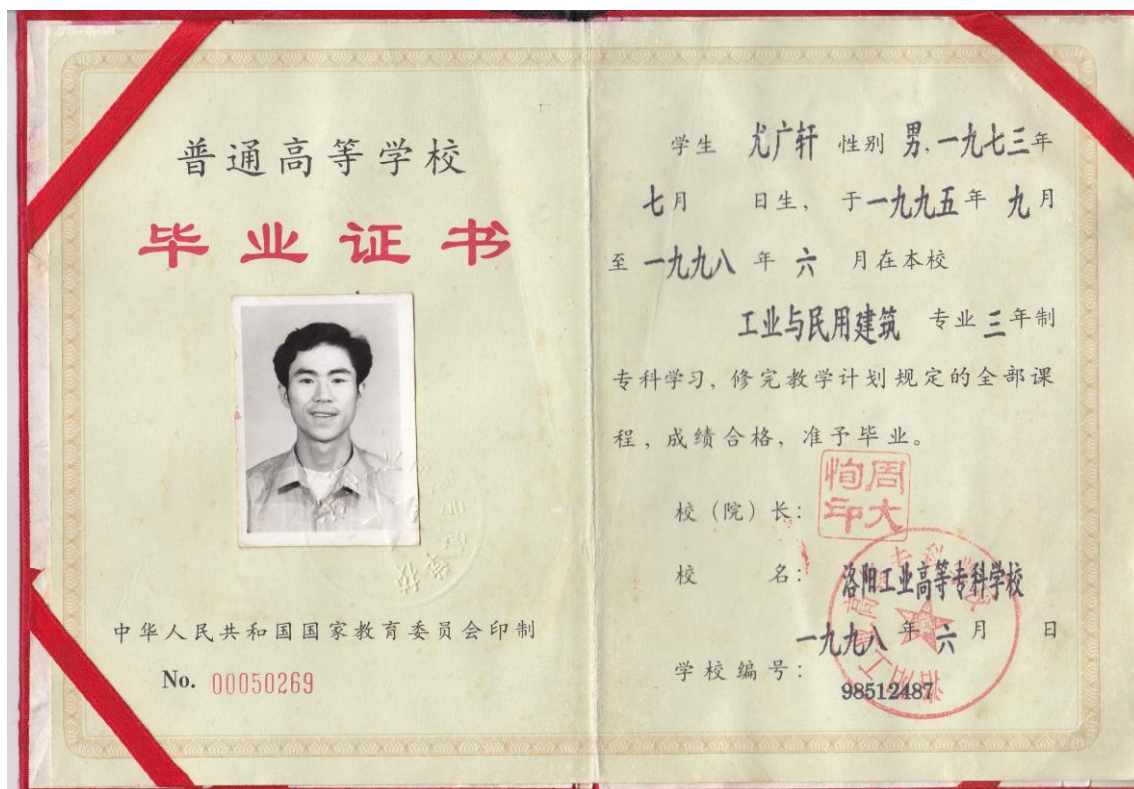 普通高等学校
毕业证书
中华人民共和国国家教育委员会印制
No. 00050269
学生 尤广轩 性别 男,一九七三年
七月 日生, 于一九九五年 九月
至 一九九八 年 六 月在本校
工业与民用建筑 专业 三年制
专科学习, 修完教学计划规定的全部课
程, 成绩合格, 准予毕业。
校(院)长:
周大恂印
校 名: 洛阳工业高等专科学校
一九九八 年 六 月 日
学校编号: 98512487